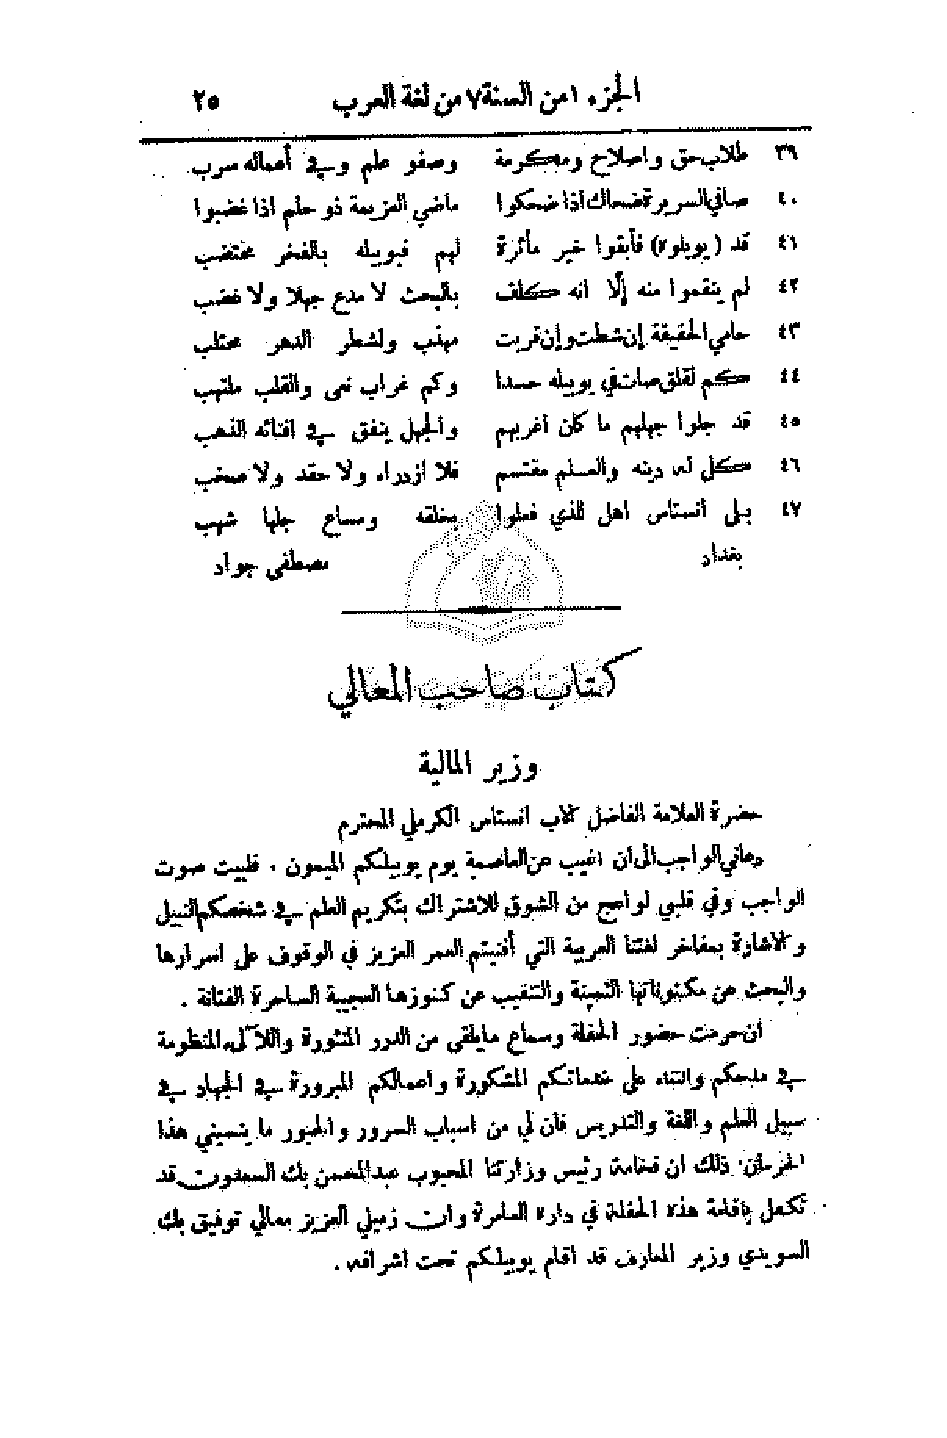 الجزء ١ من السنة ٧ من لغة العرب ٢٥
٣٩ طلاب حق واصلاح ومكرمة وصفو علم وفي أعماله سرب
٤٠ صافي السريرة ضحاك اذا ضحكوا ماضي العزيمة ذو حلم اذا غضبوا
٤١ قد (يوبلوه) فأبقوا خير مأثرة لهم فيوبيله بالفخر مختضب
٤٢ لم ينقموا منه إلّا انه كلف بالبحث لا مدع جهلا ولا غضب
٤٣ حامي الحقيقة إن شطت وإن قربت مهذب ولشطر الدهر محتلب
٤٤ كم لقلق صات في يوبيله حسدا وكم غراب نعى والقلب ملتهب
٤٥ قد جلوا جهلهم ما كان أغربهم والجهل ينفق في افنائه الذهب
٤٦ كل له دينه والعلم مقتسم فلا ازدراء ولا حقد ولا صخب
٤٧ بلى أنستاس اهل للذي فعلوا بخلقه ومساع جلها شهب
بغداد مصطفى جواد
كتاب صاحب المعالي
وزير المالية
حضرة العلامة الفاضل كلاب انستاس الكرملي المحترم
دعاني الواجب الى ان اغيب عن العاصمة يوم يوبيلكم الميمون . فلبيت صوت
الواجب وفي قلبي لواعج من الشوق للاشتراك بتكريم العلم في شخصكم النبيل
وكلاشارة بمفاخر لغتنا العربية التي أفنيتم العمر العزيز في الوقوف على اسرارها
والبحث عن مكنوناتها الثمينة والتنقيب عن كنوزها العجيبة الساحرة الفتانة .
ان حرمت حضور الحفلة وسماع مايلقى من الدرر المنثورة واللآلىء المنظومة
في مدحكم والثناء على خدماتكم المشكورة واعمالكم المبرورة في الجهاد في
سبيل العلم واللغة والتدريس فان لي من اسباب السرور والحبور ما ينسيني هذا
الحرمان. ذلك ان فخامة رئيس وزارتنا المحبوب عبدالمحسن بك السعدون قد
تكفل باقامة هذه الحفلة في داره العامرة وان زميلي العزيز معالي توفيق بك
السويدي وزير المعارف قد اقام يوبيلكم تحت اشرافه .